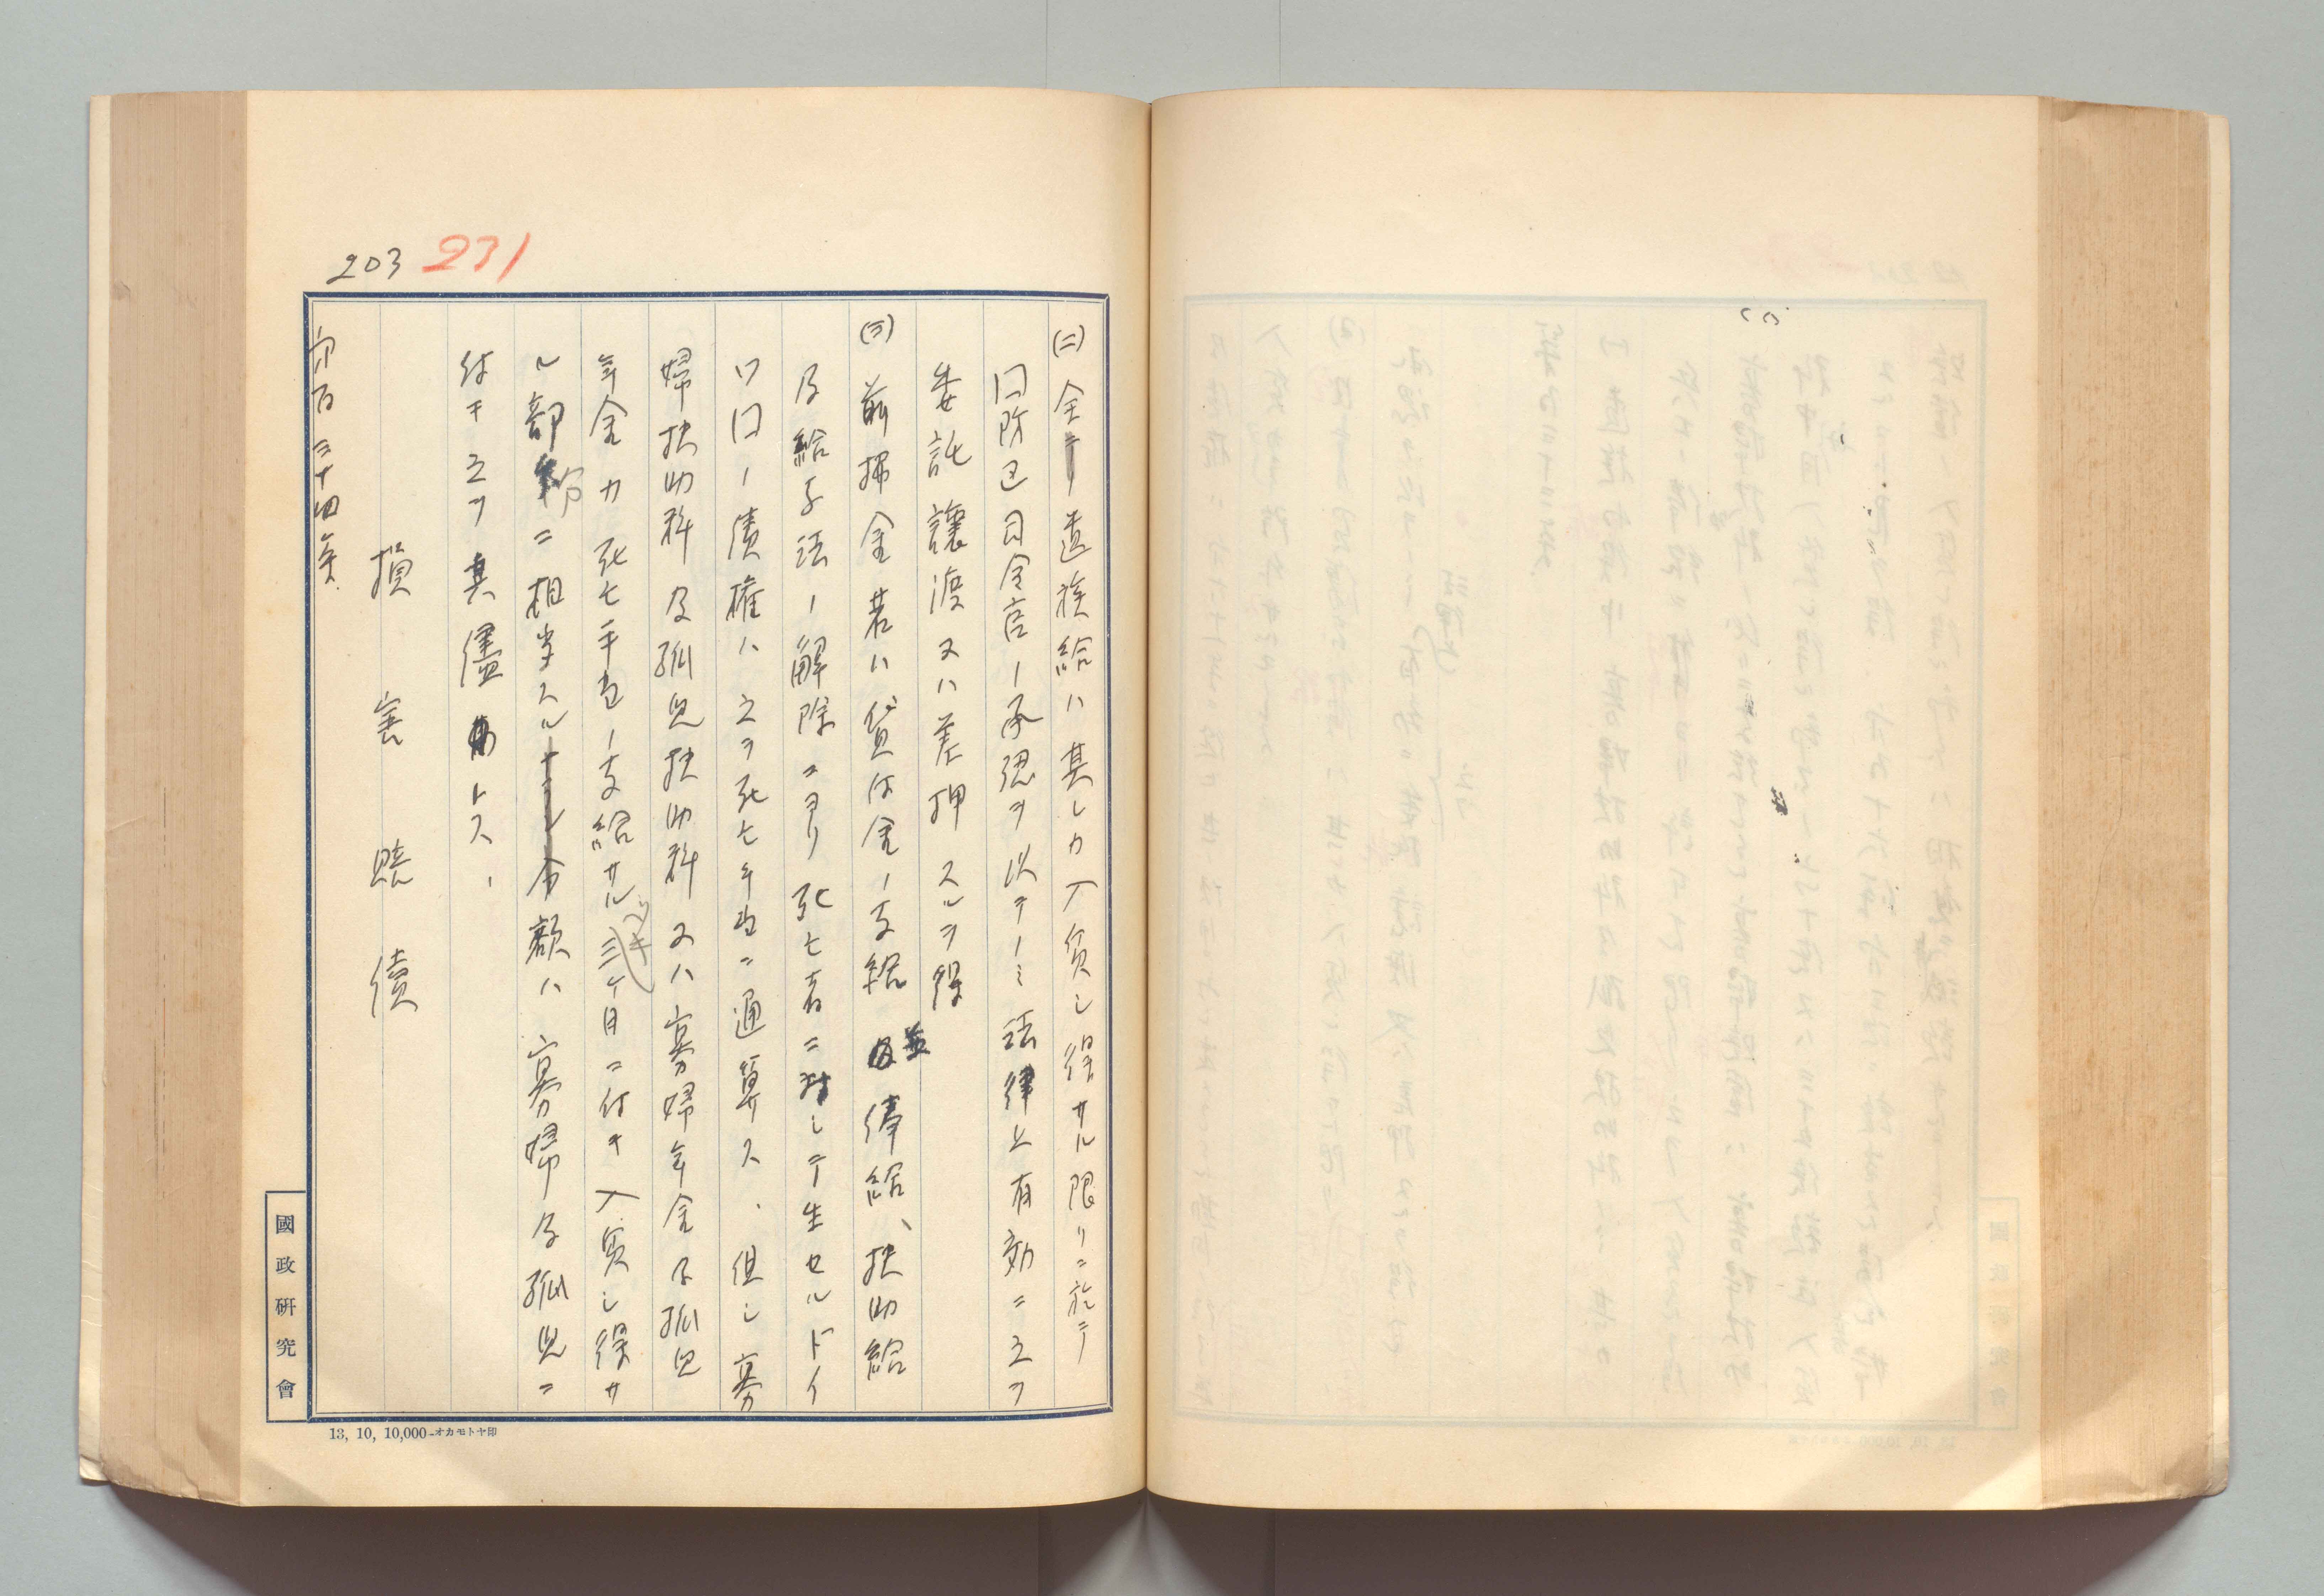 203 231
(二) 全テノ遺族給ハ其レカ入質シ得サル限リニ於テ
国防己司令官ノ承認ヲ以テノミ法律上有効ニ之ヲ
委託譲渡又ハ差押スルヲ得
(三) 前拂金若ハ貸付金ノ支給並俸給、扶助給
及給与法ノ解除ニヨリ死亡者ニ対シテ生セルドイ
ツ国ノ債権ハ之ヲ死亡手当ニ通算ス、但シ寡
婦扶助料及孤児扶助料又ハ寡婦年金及孤児
年金カ死亡手当ノ支給サルベキ三ケ月ニ付キ入質シ得サ
ル部分ニ相当スル金額ハ寡婦及孤児ニ
付キ之ヲ其儘トス、
損害賠償
第百三十四条
國政研究會
13, 10, 10,000-オカモトヤ印